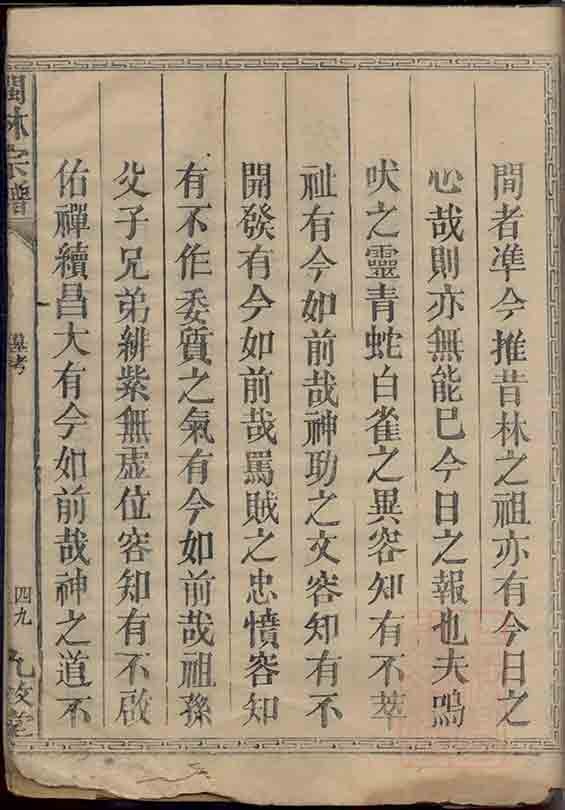 間者準今推昔林之祖亦有今日之
心哉則亦無能巳今日之報也夫鳴
吠之靈青蛇白雀之異容知有不萃
祉有今如前哉神功之文容知有不
開發有今如前哉罵賊之忠憤容知
有不作委質之氣有今如前哉祖孫
父子兄弟緋紫無虛位容知有不啟
佑禪續昌大有今如前哉神之道不
閩林宗譜
墓考
四九